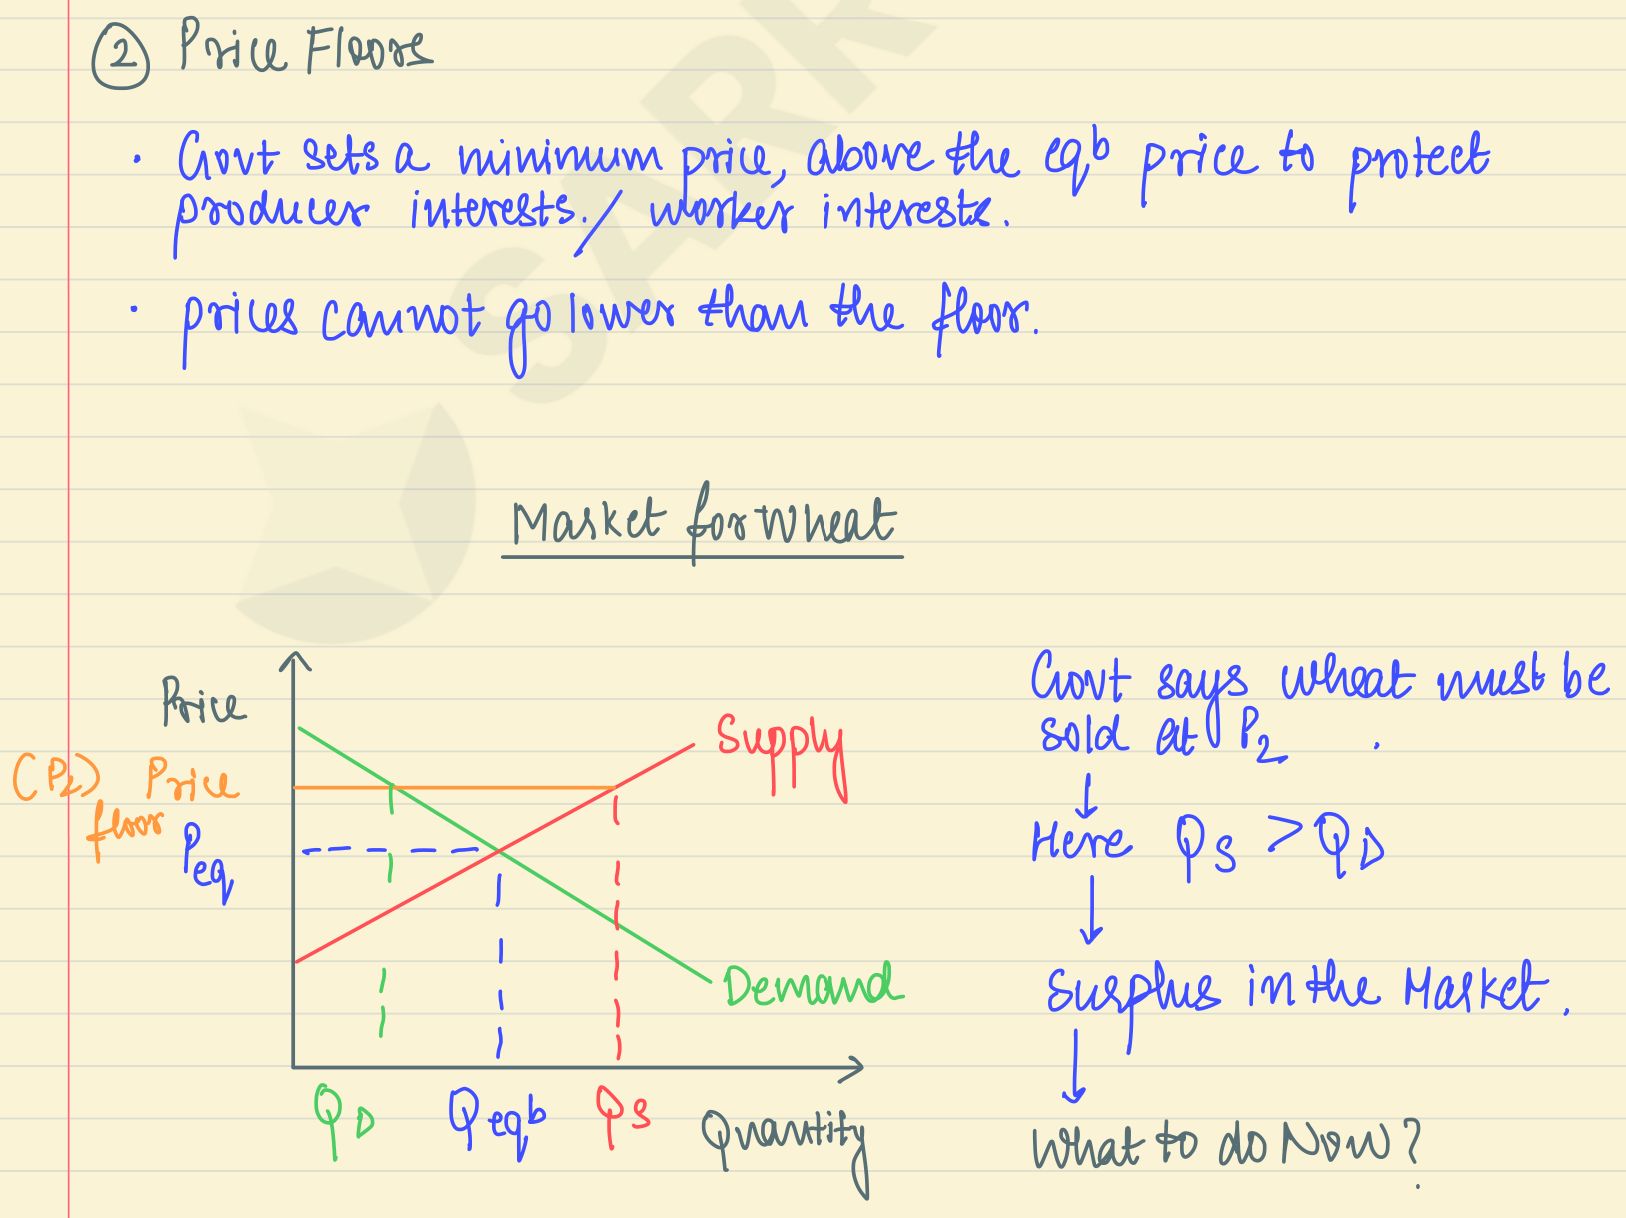 2 Price Floors
· Govt sets a minimum price, above the eqb price to protect
producer interests. / worker interests.
· prices cannot go lower than the floor.
Market for Wheat
Price
(P2) Price
floor
Peq
Supply
Demand
QD Qeqb QS Quantity
Govt says wheat must be
sold at P2 .
↓
Here QS > QD
↓
Surplus in the Market.
↓
What to do Now?
SARK